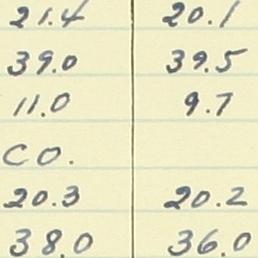 21.4 20.1
39.0 39.5
11.0 9.7
CO.
20.3 20.2
38.0 36.0